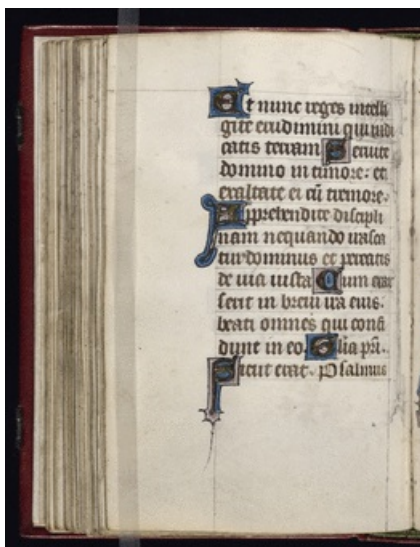 Et nunc reges intelli
gite erudimini qui iudi
catis terram Seruite
domino in timore et
exaltate ei cū tremore.
Apprehendite discipli
nam nequando irasca
tur dominus et pereatis
de uia iusta Cum exar
serit in breui ira eius.
beati omnes qui confi
dunt in eo. Glia pri.
Sicut erat. Psalmus